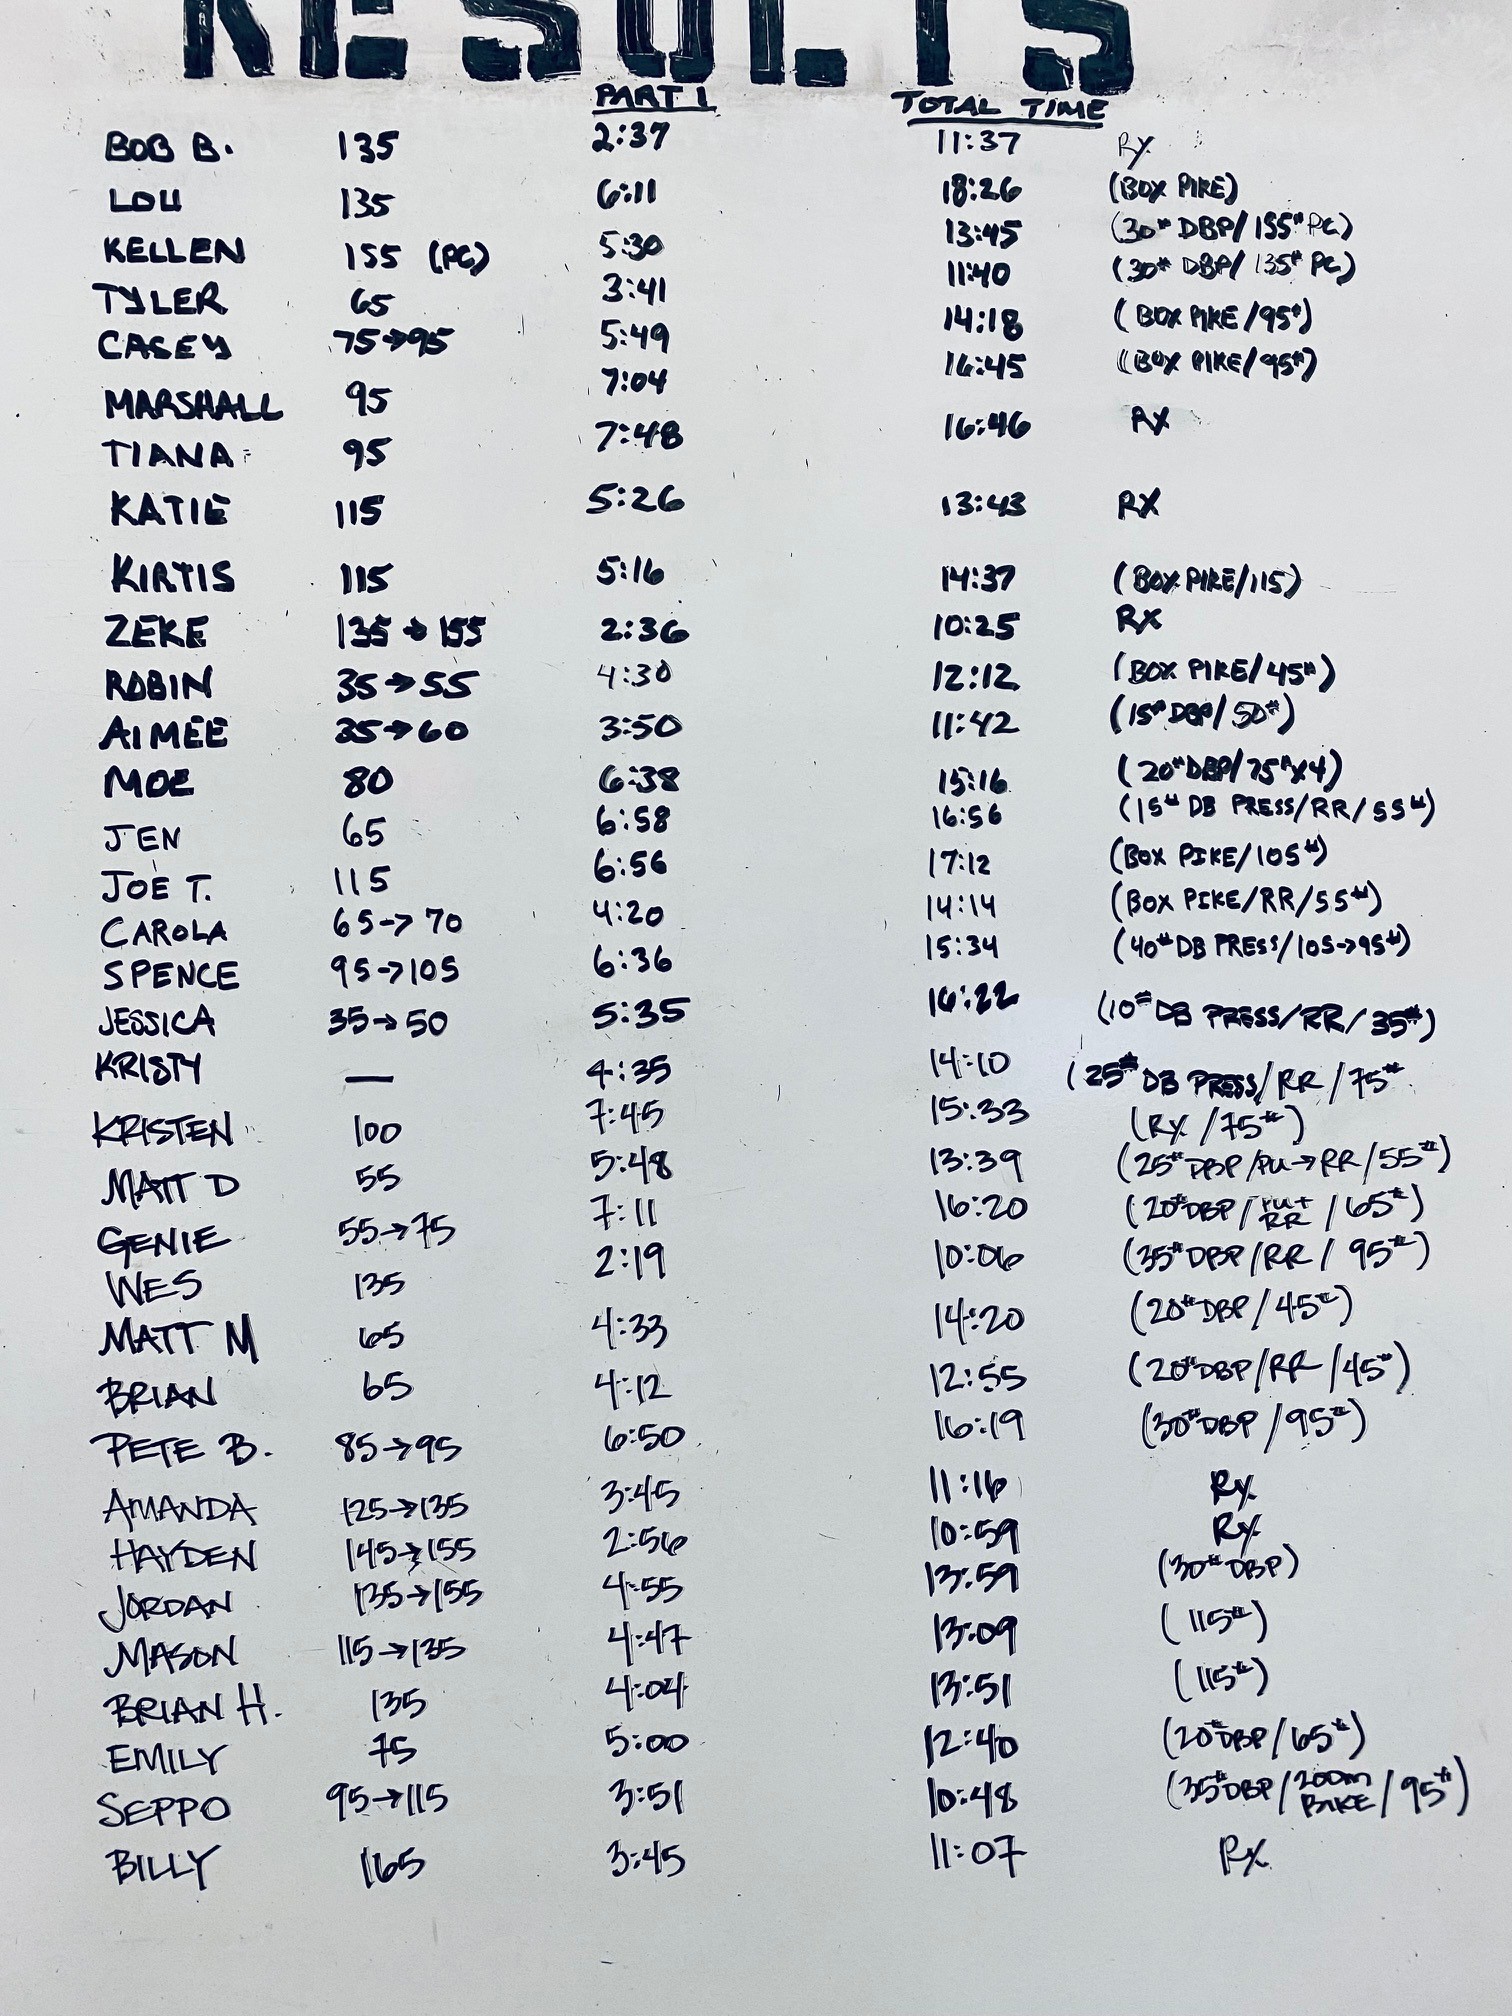 RESULTS
PART 1 TOTAL TIME
BOB B. 135 2:37 11:37 Rx
LOU 135 6:11 18:26 (BOX PIKE)
KELLEN 155 (PC) 5:30 13:45 (30# DBP/155# PC)
TYLER 65 3:41 11:40 (30# DBP/135# PC)
CASEY 75→95 5:49 14:18 (BOX PIKE/95#)
MARSHALL 95 7:04 16:45 (BOX PIKE/95#)
TIANA 95 7:48 16:46 RX
KATIE 115 5:26 13:43 RX
KIRTIS 115 5:16 14:37 (BOX PIKE/115)
ZEKE 135→155 2:36 10:25 RX
ROBIN 35→55 4:30 12:12 (BOX PIKE/45#)
AIMEE 35→60 3:50 11:42 (15# DBP/50#)
MOE 80 6:38 15:16 (20# DBP/75# X4)
JEN 65 6:58 16:56 (15# DB PRESS/RR/55#)
JOE T. 115 6:56 17:12 (BOX PIKE/105#)
CAROLA 65→70 4:20 14:14 (BOX PIKE/RR/55#)
SPENCE 95→105 6:36 15:34 (40# DB PRESS/105→95#)
JESSICA 35→50 5:35 16:22 (10# DB PRESS/RR/35#)
KRISTY — 4:35 14:10 (25# DB PRESS/RR/75#
KRISTEN 100 7:45 15:33 (Rx/75#)
MATT D 55 5:48 13:39 (25# DBP/PU→RR/55#)
GENIE 55→75 7:11 16:20 (20# DBP/PU+ RR/65#)
WES 135 2:19 10:06 (35# DBP/RR/95#)
MATT M 65 4:33 14:20 (20# DBP/45#)
BRIAN 65 4:12 12:55 (20# DBP/RR/45#)
PETE B. 85→95 6:50 16:19 (30# DBP/95#)
AMANDA 125→135 3:45 11:16 Rx
HAYDEN 145→155 2:56 10:59 Rx
JORDAN 135→155 4:55 13:59 (30# DBP)
MASON 115→135 4:47 13:09 (115#)
BRIAN H. 135 4:04 13:51 (115#)
EMILY 75 5:00 12:40 (20# DBP/65#)
SEPPO 95→115 3:51 10:48 (35# DBP/200m BIKE/95#)
BILLY 165 3:45 11:07 Rx